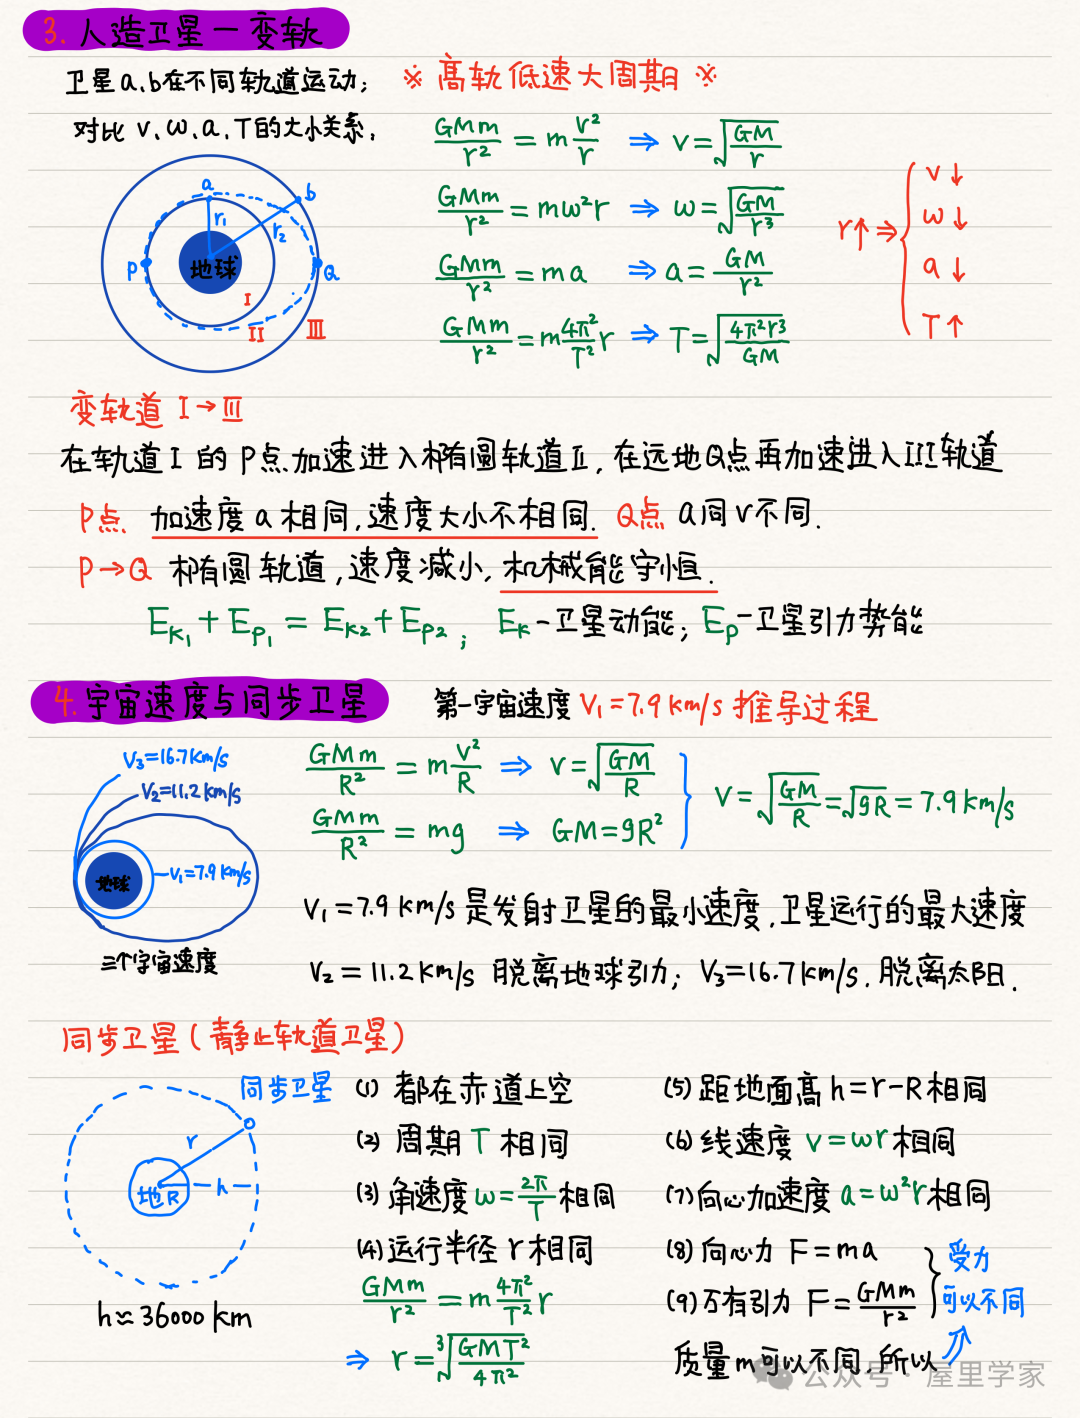 3. 人造卫星—变轨
卫星a.b在不同轨道运动;
※ 高轨低速大周期 ※
对比 v.ω.a.T的大小关系.
GMm/r² = m v²/r ⇒ v=√(GM/r)
GMm/r² = mω²r ⇒ ω=√(GM/r³)
GMm/r² = ma ⇒ a= GM/r²
GMm/r² = m 4π²/T² r ⇒ T=√(4π²r³/GM)
r↑ ⇒ { v↓
ω↓
a↓
T↑
a
b
r₁
r₂
P
地球
Q
I
II
III
变轨道 I→III
在轨道I 的 P点.加速进入椭圆轨道II, 在远地Q点再加速进入III轨道
P点. 加速度a相同,速度大小不相同. Q点 a同v不同.
P→Q 椭圆轨道,速度减小, 机械能守恒.
Eₖ₁+Eₚ₁ = Eₖ₂+Eₚ₂; Eₖ-卫星动能; Eₚ-卫星引力势能
4. 宇宙速度与同步卫星
第一宇宙速度 V₁=7.9km/s 推导过程
V₃=16.7km/s
V₂=11.2km/s
V₁=7.9km/s
地球
三个宇宙速度
GMm/R² = m V²/R ⇒ v=√(GM/R)
GMm/R² = mg ⇒ GM=gR²
} V=√(GM/R)=√(gR)=7.9km/s
V₁=7.9km/s是发射卫星的最小速度,卫星运行的最大速度
V₂=11.2km/s 脱离地球引力; V₃=16.7km/s.脱离太阳.
同步卫星(静止轨道卫星)
同步卫星
r
地
R
h
h≈36000km
(1) 都在赤道上空
(2) 周期T相同
(3) 角速度ω=2π/T相同
(4)运行半径r相同
GMm/r² = m 4π²/T² r
⇒ r=³√(GMT²/4π²)
(5) 距地面高h=r-R相同
(6) 线速度 v=ωr相同
(7)向心加速度 a=ω²r相同
(8) 向心力 F=ma
(9)万有引力 F=GMm/r²
} 受力
可以不同
质量m可以不同,所以
公众号·屋里学家